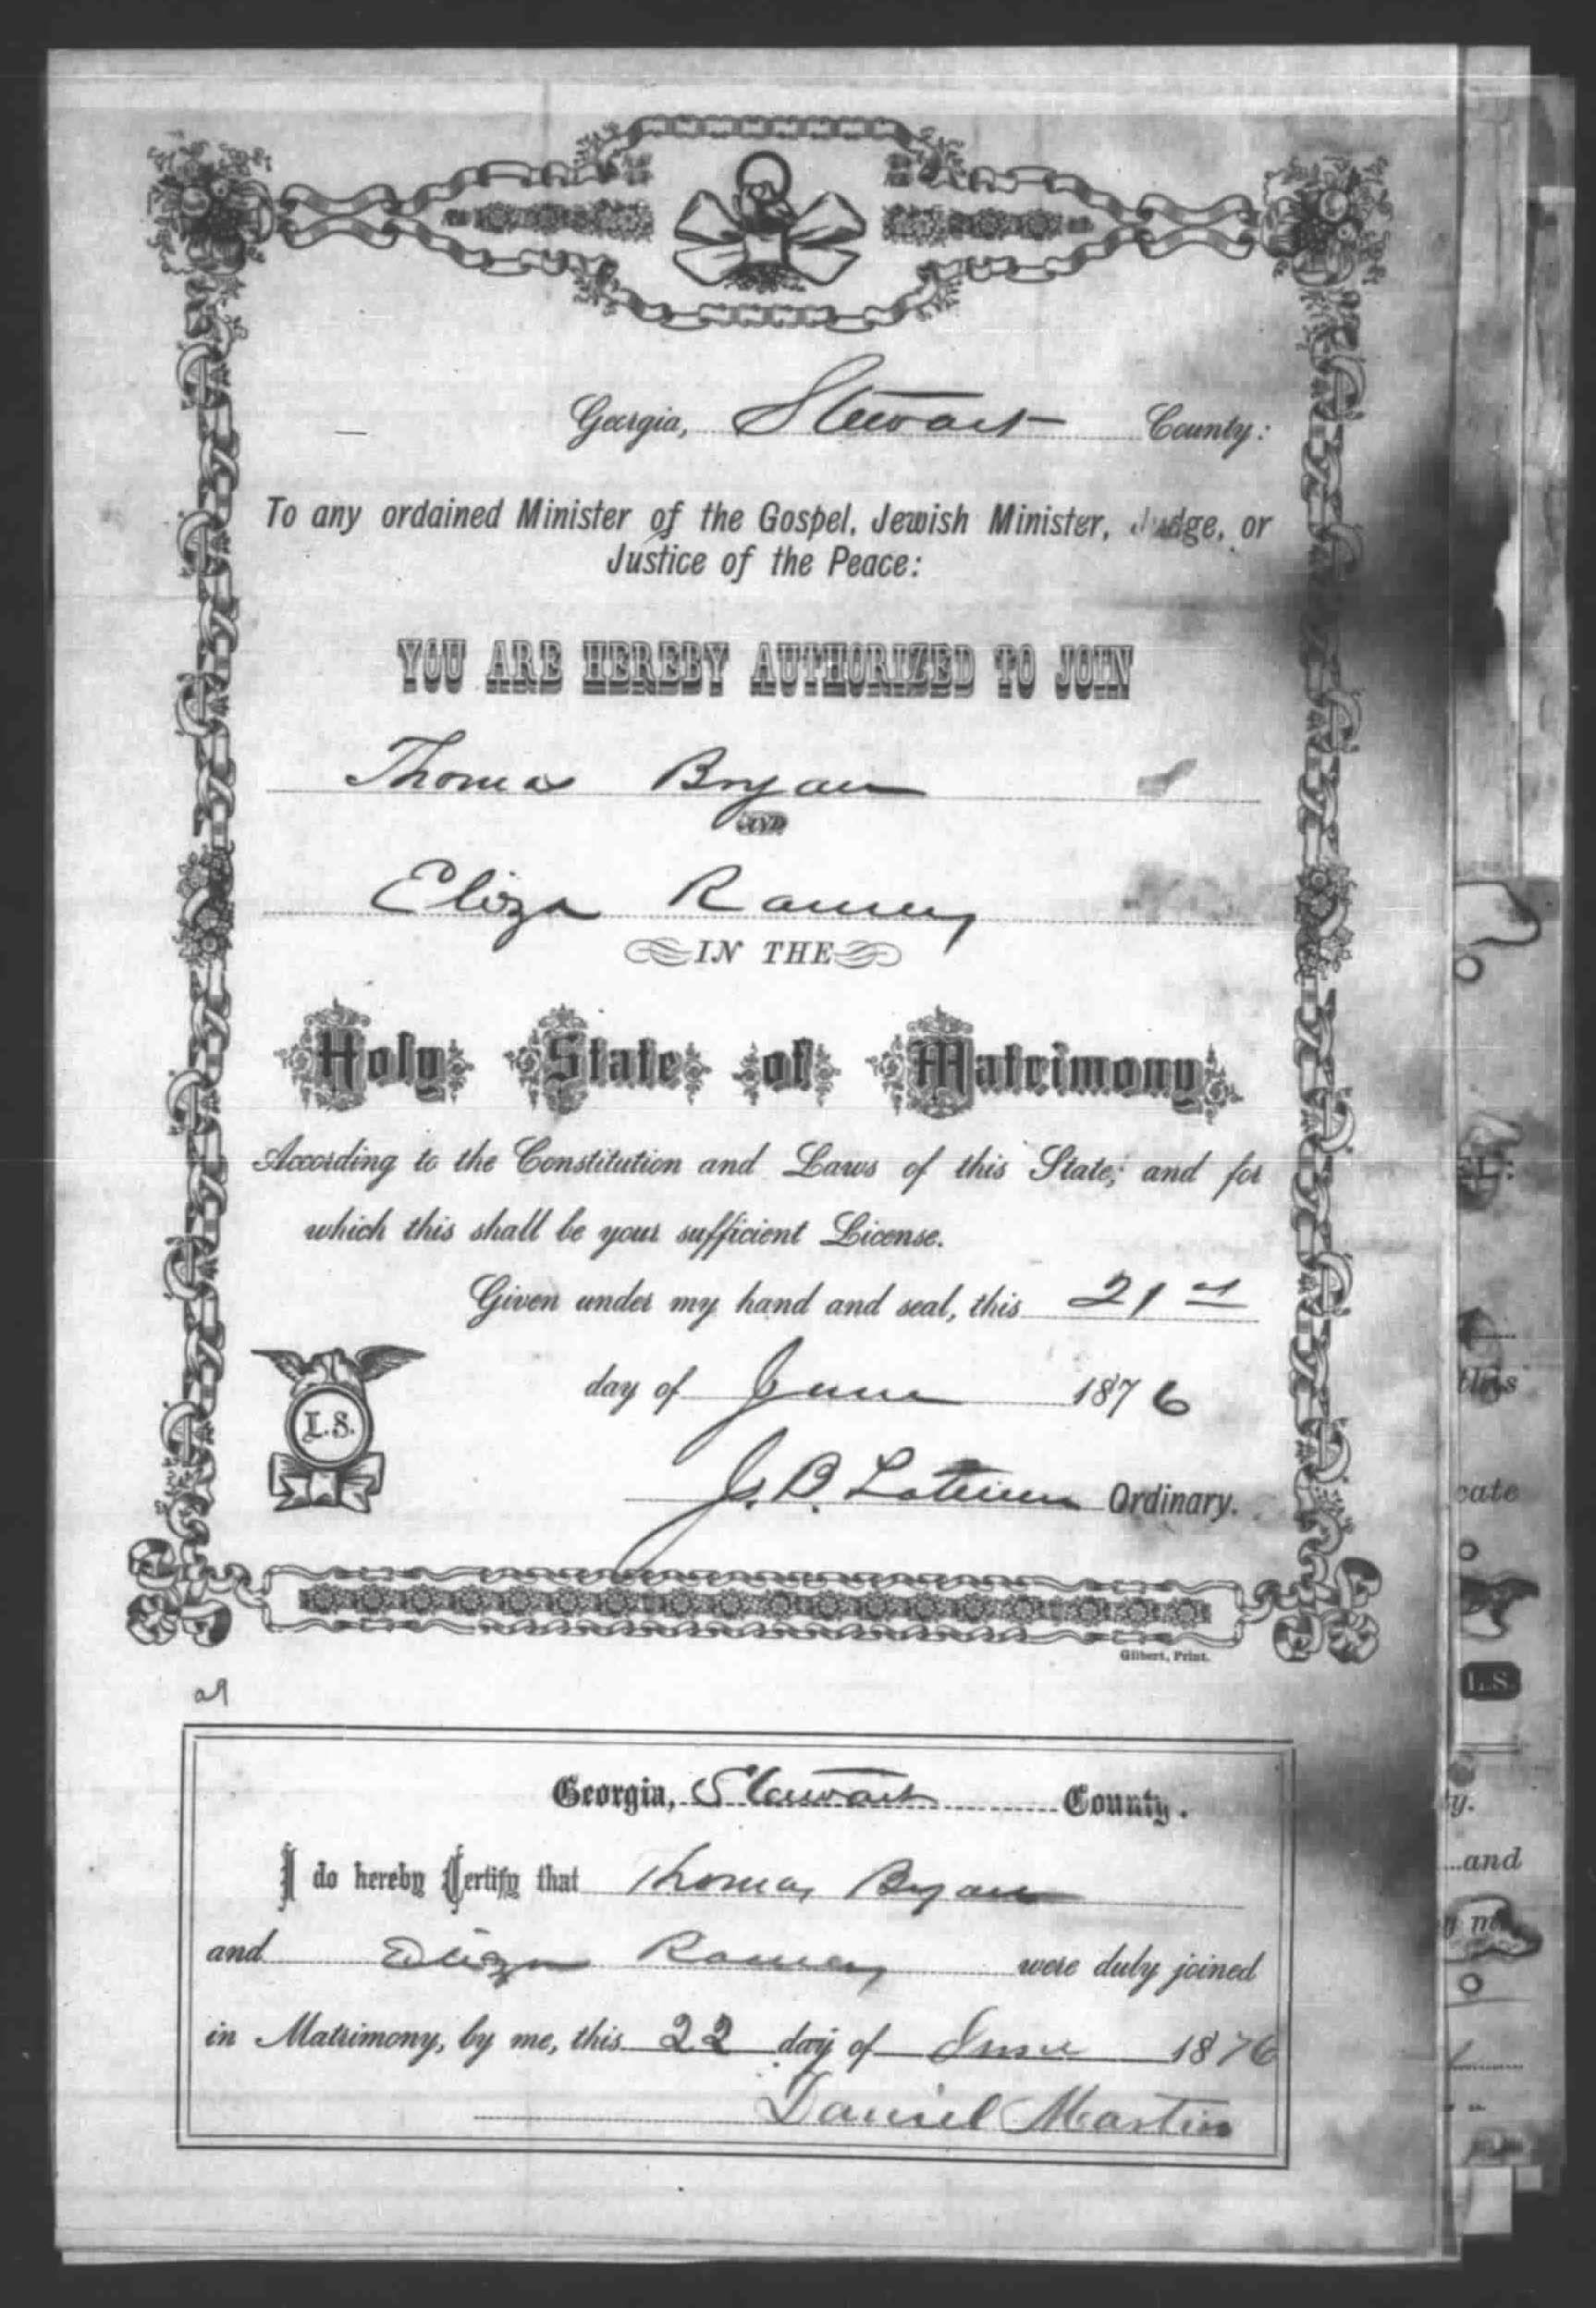 Georgia, Stewart County:
To any ordained Minister of the Gospel, Jewish Minister, Judge, or
Justice of the Peace:
YOU ARE HEREBY AUTHORIZED TO JOIN
Thomas Bryan
AND
Eliza Ramey
IN THE
Holy State of Matrimony
According to the Constitution and Laws of this State; and for
which this shall be your sufficient License.
Given under my hand and seal, this 21st
day of June 1876
L.S.
J. B. Latimer Ordinary.
Gilbert, Print.
Georgia, Stewart County.
I do hereby Certify that Thomas Bryan
and Eliza Ramey were duly joined
in Matrimony, by me, this 22 day of June 1876
Daniel Martin
this
cate
L.S.
ty.
and